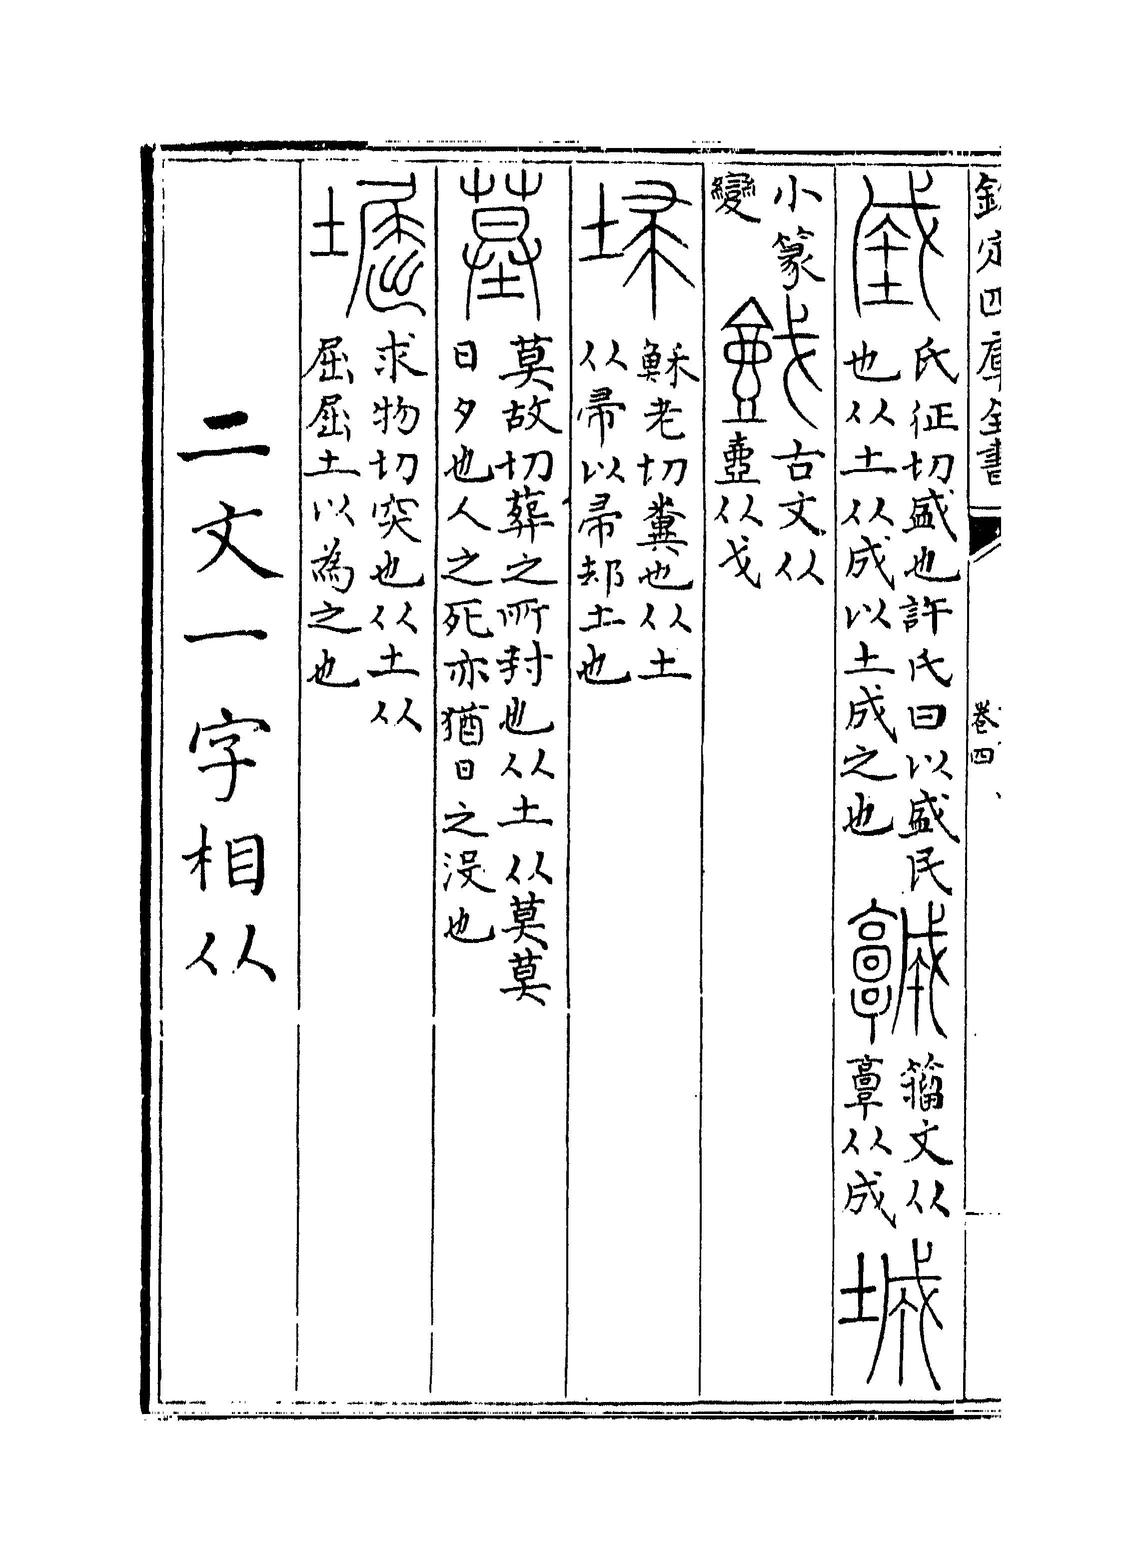 欽定四庫全書
卷四
城
氏征切盛也許氏曰以盛民
也从土从成以土成之也
籀文从
𩫏从成
城
小篆
變
古文从
壺从戈
埽
穌老切糞也从土
从帚以帚却土也
墓
莫故切葬之所封也从土从莫莫
日夕也人之死亦猶日之没也
堀
求物切突也从土从
屈屈土以為之也
二文一字相从